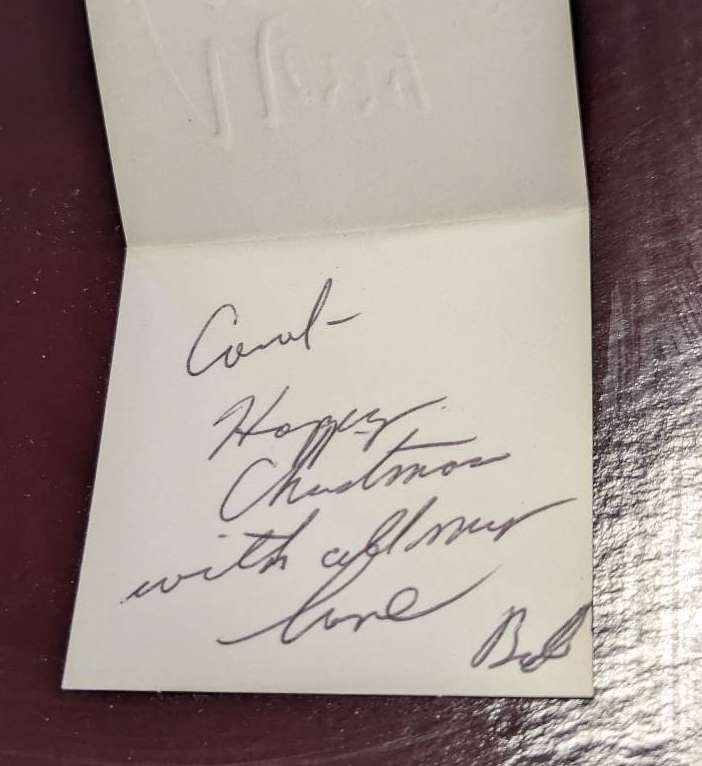 Carol-
Happy
Christmas
with all my
love
Bob